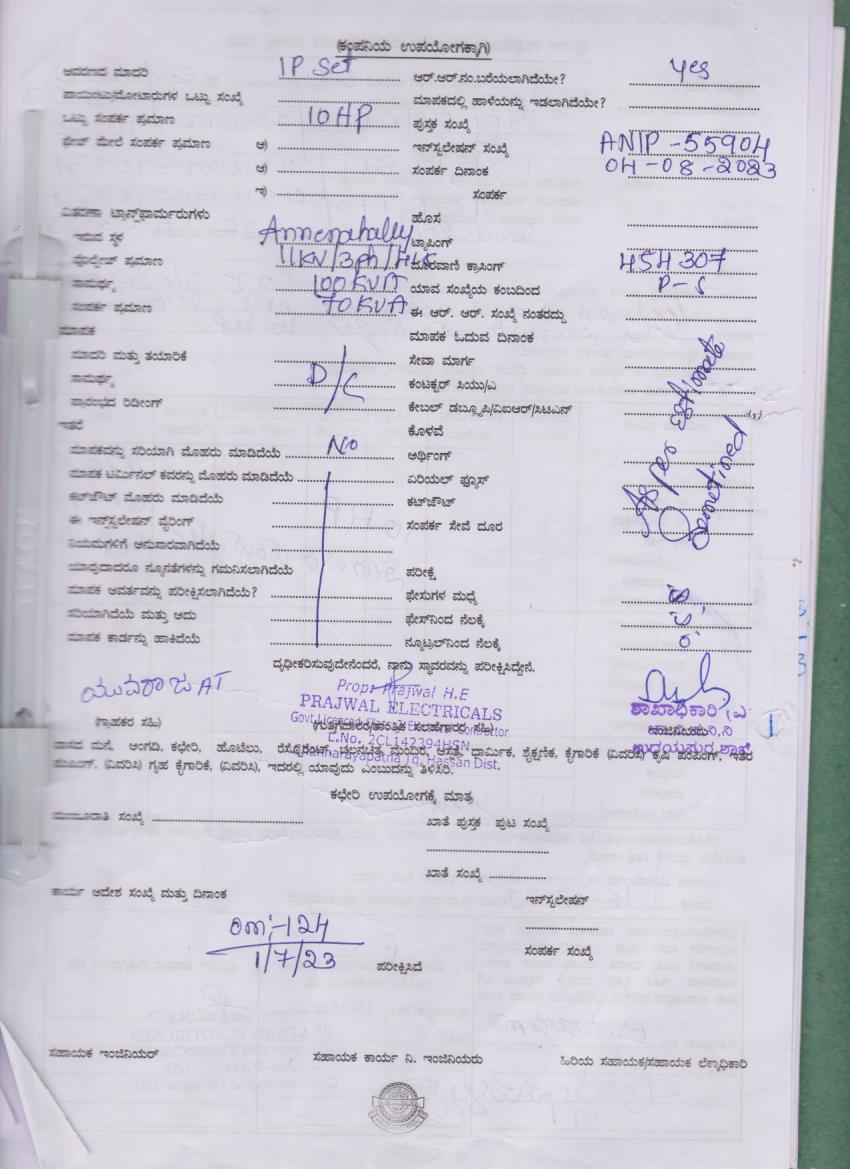 (ಕಂಪನಿಯ ಉಪಯೋಗಕ್ಕಾಗಿ)
ಆವರಣದ ಮಾದರಿ IP Set ಆರ್.ಆರ್.ನಂ.ಬರೆಯಲಾಗಿದೆಯೇ? Yes
ಪಾಯಿಂಟು/ಮೋಟಾರುಗಳ ಒಟ್ಟು ಸಂಖ್ಯೆ ಮಾಪಕದಲ್ಲಿ ಹಾಳೆಯನ್ನು ಇಡಲಾಗಿದೆಯೇ?
ಒಟ್ಟು ಸಂಪರ್ಕ ಪ್ರಮಾಣ 10HP ಪುಸ್ತಕ ಸಂಖ್ಯೆ
ಫೇಜ್ ಮೇಲೆ ಸಂಪರ್ಕ ಪ್ರಮಾಣ ಅ) ಇನ್‌ಸ್ಟಲೇಷನ್ ಸಂಖ್ಯೆ ANIP-55904
ಆ) ಸಂಪರ್ಕ ದಿನಾಂಕ 04-08-2023
ಇ) ಸಂಪರ್ಕ
ವಿತರಣಾ ಟ್ರಾನ್ಸ್‌ಫಾರ್ಮರುಗಳು ಹೊಸ
ಇರುವ ಸ್ಥಳ Annenahally ಟ್ಯಾಪಿಂಗ್
ವೋಲ್ಟೇಜ್ ಪ್ರಮಾಣ 11KV/3Ph/ ದೂರವಾಣಿ ಕ್ರಾಸಿಂಗ್ 454307
ಸಾಮರ್ಥ್ಯ 100KVA ಯಾವ ಸಂಖ್ಯೆಯ ಕಂಬದಿಂದ P-5
ಸಂಪರ್ಕ ಪ್ರಮಾಣ 70KVA ಈ ಆರ್. ಆರ್. ಸಂಖ್ಯೆ ನಂತರದ್ದು
ಮಾಪಕ ಮಾಪಕ ಓದುವ ದಿನಾಂಕ
ಮಾದರಿ ಮತ್ತು ತಯಾರಿಕೆ ಸೇವಾ ಮಾರ್ಗ
ಸಾಮರ್ಥ್ಯ D/C ಕಂಟಕ್ಟರ್ ಸಿಯು/ಎ
ಪ್ರಾರಂಭದ ರಿಡೀಂಗ್ ಕೇಬಲ್ ಡಬ್ಲ್ಯೂಪಿ/ಏಐಆರ್/ಸಿಟಿಎನ್
ಇತರೆ ಕೊಳವೆ
ಮಾಪಕವನ್ನು ಸರಿಯಾಗಿ ಮೊಹರು ಮಾಡಿದೆಯೆ No ಅರ್ಥಿಂಗ್
As per estimate
ಮಾಪಕ ಟರ್ಮಿನಲ್ ಕವರನ್ನು ಮೊಹರು ಮಾಡಿದೆಯೆ ಏರಿಯಲ್ ಫ್ಯೂಸ್
ಕಟ್‌ಔಟ್ ಮೊಹರು ಮಾಡಿದೆಯೆ ಕಟ್‌ಔಟ್
ಈ ಇನ್‌ಸ್ಟಲೇಷನ್ ವೈರಿಂಗ್ ಸಂಪರ್ಕ ಸೇವೆ ದೂರ
ನಿಯಮಗಳಿಗೆ ಅನುಸಾರವಾಗಿದೆಯೆ
ಯಾವುದಾದರೂ ನ್ಯೂನತೆಗಳನ್ನು ಗಮನಿಸಲಾಗಿದೆಯೆ ಪರೀಕ್ಷೆ
ಮಾಪಕ ಆವರ್ತವನ್ನು ಪರೀಕ್ಷಿಸಲಾಗಿದೆಯೆ? ಫೇಸುಗಳ ಮಧ್ಯೆ
ಸರಿಯಾಗಿದೆಯೆ ಮತ್ತು ಅದು ಫೇಸ್‌ನಿಂದ ನೆಲಕ್ಕೆ
ಮಾಪಕ ಕಾರ್ಡನ್ನು ಹಾಕಿದೆಯೆ ನ್ಯೂಟ್ರಲ್‌ನಿಂದ ನೆಲಕ್ಕೆ
ದೃಢೀಕರಿಸುವುದೇನೆಂದರೆ, ನಾನು ಸ್ಥಾವರವನ್ನು ಪರೀಕ್ಷಿಸಿದ್ದೇನೆ.
ಯುವರಾಜ AT
Prop: Prajwal H.E
PRAJWAL ELECTRICALS
Govt Licenced Class Electrical Contractor
E.No. 2CL142394HSN
Channarayapatna Tq, Hassan Dist.
ಶಾಖಾಧಿಕಾರಿ
ಉದಯಪುರ ಶಾಖೆ
1
(ಗ್ರಾಹಕರ ಸಹಿ) (ಗುತ್ತಿಗೆದಾರರ/ತಾಂತ್ರಿಕ ಸಲಹೆಗಾರರ ಸಹಿ)
ವಾಸದ ಮನೆ, ಅಂಗಡಿ, ಕಛೇರಿ, ಹೊಟೇಲು, ರೆಸ್ಟೋರೆಂಟ್, ಚಲನಚಿತ್ರ ಮಂದಿರ, ಆಸ್ಪತ್ರೆ, ಧಾರ್ಮಿಕ, ಶೈಕ್ಷಣಿಕ, ಕೈಗಾರಿಕೆ (ವಿವರಿಸಿ) ಕೃಷಿ ಪಂಪಿಂಗ್, ಇತರೆ
ಪಂಪಿಂಗ್, (ವಿವರಿಸಿ) ಗೃಹ ಕೈಗಾರಿಕೆ, (ವಿವರಿಸಿ), ಇದರಲ್ಲಿ ಯಾವುದು ಎಂಬುದನ್ನು ತಿಳಿಸಿರಿ.
ಕಛೇರಿ ಉಪಯೋಗಕ್ಕೆ ಮಾತ್ರ
ಮಂಜೂರಾತಿ ಸಂಖ್ಯೆ ಖಾತೆ ಪುಸ್ತಕ ಪುಟ ಸಂಖ್ಯೆ
ಖಾತೆ ಸಂಖ್ಯೆ
ಕಾರ್ಯ ಆದೇಶ ಸಂಖ್ಯೆ ಮತ್ತು ದಿನಾಂಕ ಇನ್‌ಸ್ಟಲೇಷನ್
om:-124
1/7/23 ಪರೀಕ್ಷಿಸಿದೆ ಸಂಪರ್ಕ ಸಂಖ್ಯೆ
ಸಹಾಯಕ ಇಂಜಿನಿಯರ್ ಸಹಾಯಕ ಕಾರ್ಯ ನಿ. ಇಂಜಿನಿಯರು ಹಿರಿಯ ಸಹಾಯಕ/ಸಹಾಯಕ ಲೆಕ್ಕಾಧಿಕಾರಿ